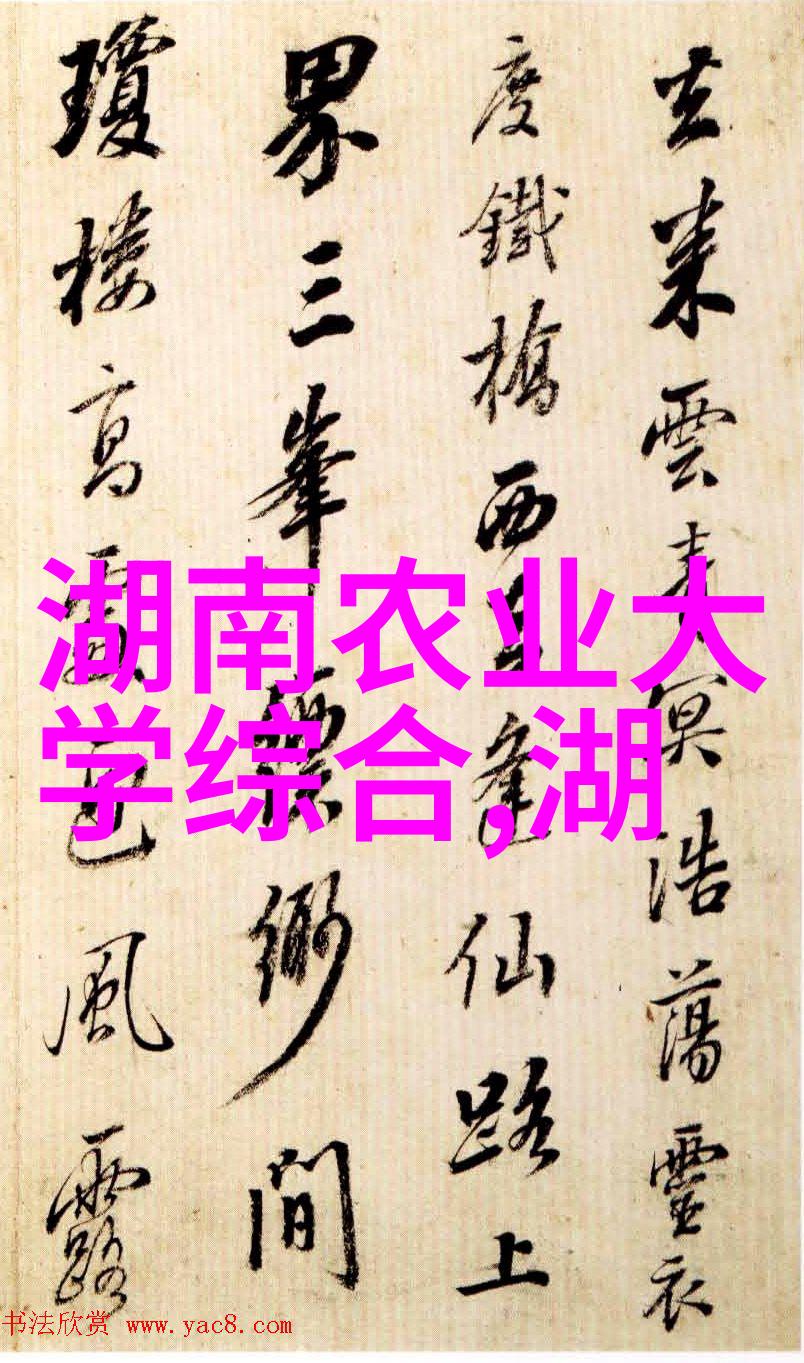 去来雲青冥浩蕩靈衣
度鐵橋西逢仙路上
界三峯縹緲間
瓊樓高色風露
湖南农业大
学综合,湖
书法欣赏 www.yac8.com